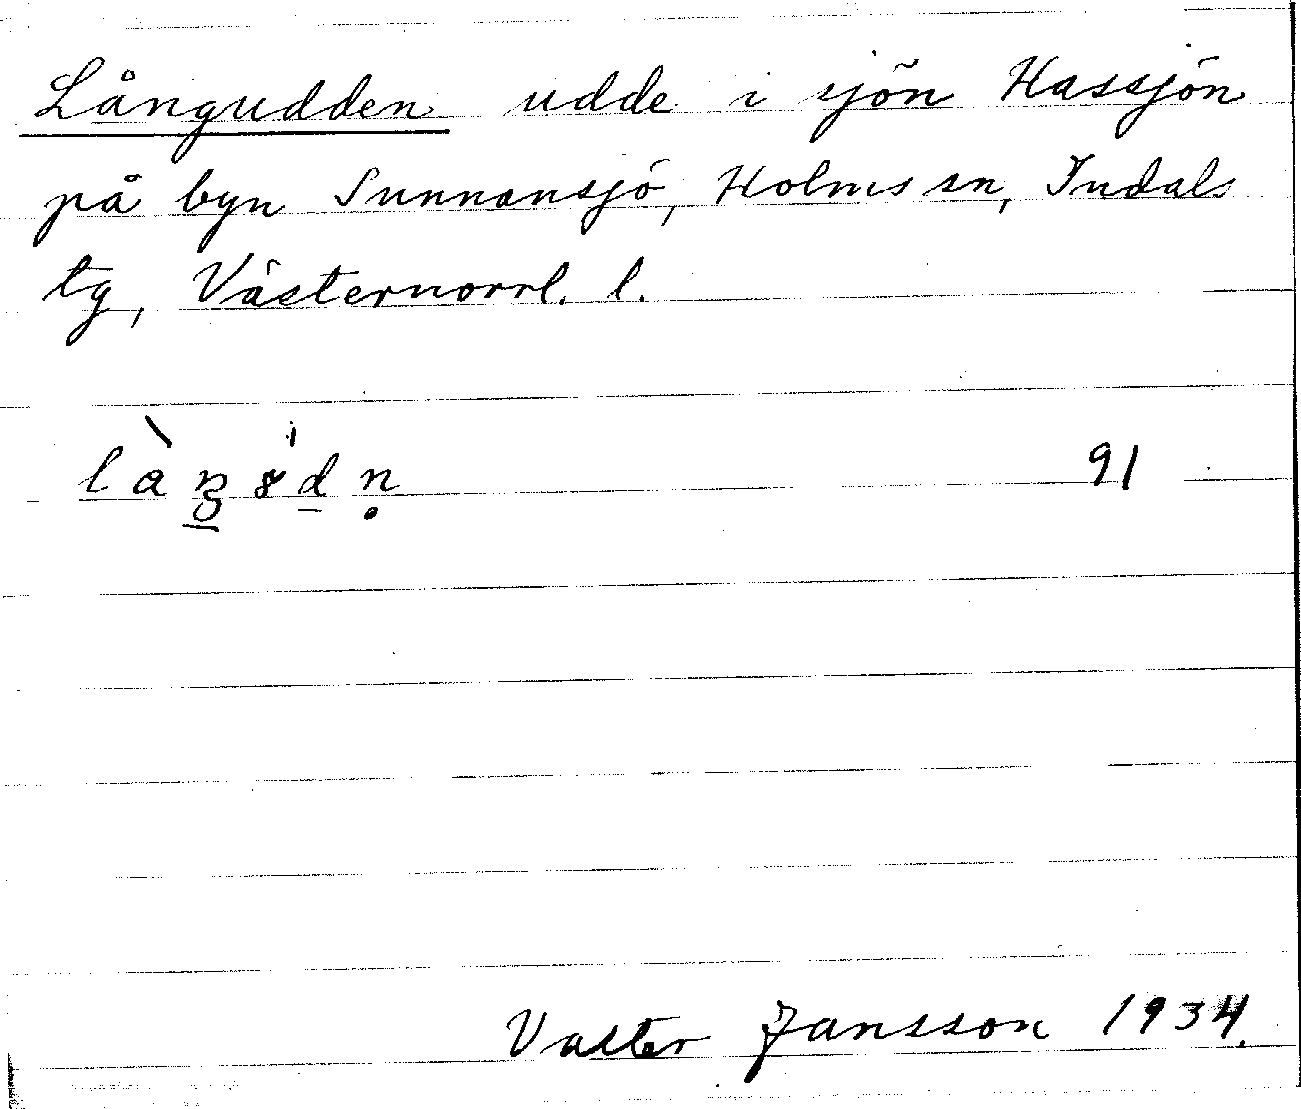 Långudden udde i sjön Hassjön
på byn Sunnansjö, Holms sn, Indals
tg, Västernorrl. l.
91
Valter Jansson 1934.